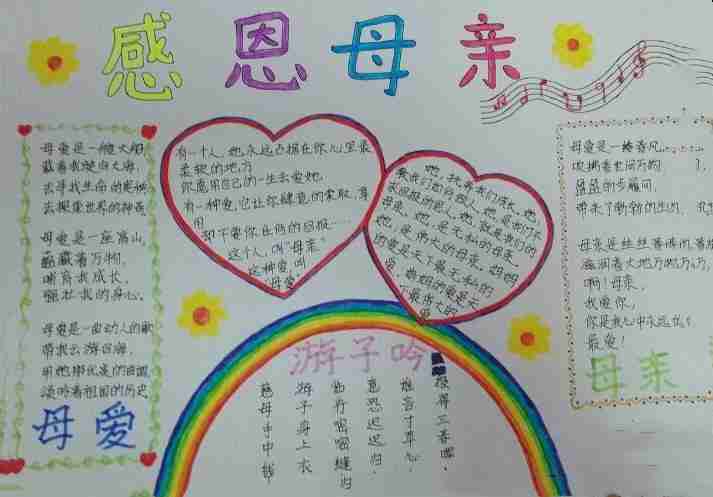 感恩母亲
母爱是一艘大船
载着我驶向大海,
去寻找生命的奥秘
去探索世界的神奇
母爱是一座高山,
蕴藏着万物,
哺育我成长,
强壮我的身心。
母爱是一曲动人的歌
带我去游四海,
用她那优美的
谈吟着祖国的历史
母爱
有一个人,她永远占据在你心里最
柔软的地方
你愿用自己的一生去爱她
有一种爱,它让你肆意的索取,享
用
却不要你任何的回报……
这个人,叫“母亲”
这种爱,叫
母爱
她,抚养我们成长,她,
是我们的负担人,她,是我们不
求回报的恩人,她,就是我们的
母亲。她,是无私的母亲,
她,是伟大的母亲。妈妈
的爱是天下最无私的
爱,妈妈的爱是天
下最伟大的
爱
母爱是一缕春风……
吹拂着世间万物
盈盈的步履间,
带来了渐渐的生机
母亲是丝丝春的
滋润着大地万物
啊!母亲,
我爱你,
你是我心中永远的
最爱!
母亲
游子吟
慈母手中线,
游子身上衣
临行密密缝
意恐迟迟归,
谁言寸草心,
报得三春晖。